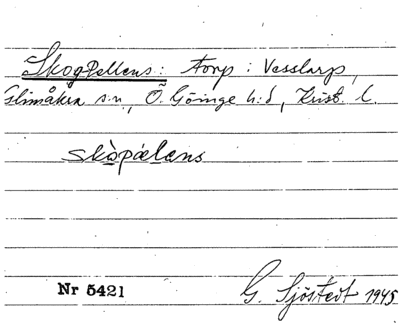 SkogPellens: torp: Vesslarp,
Glimåkra s:n, Ö. Göinge h:d, Krist. l.
skòpælæns
Nr 5421
G. Sjöstedt 1945